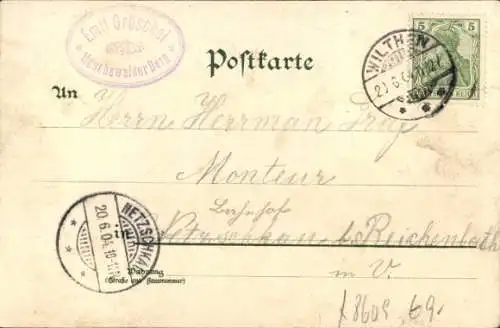 Emil Gröschel
Mönchswalder Berg
Postkarte
5 5
WILTHEN
20.6.04
An
Herrn Herrman
Monteur
Bahnhof
in Netzschkau b. Reichenbach
i. V.
NETZSCHKAU
20.6.04. 10-11
Wohnung
(Straße und Hausnummer)